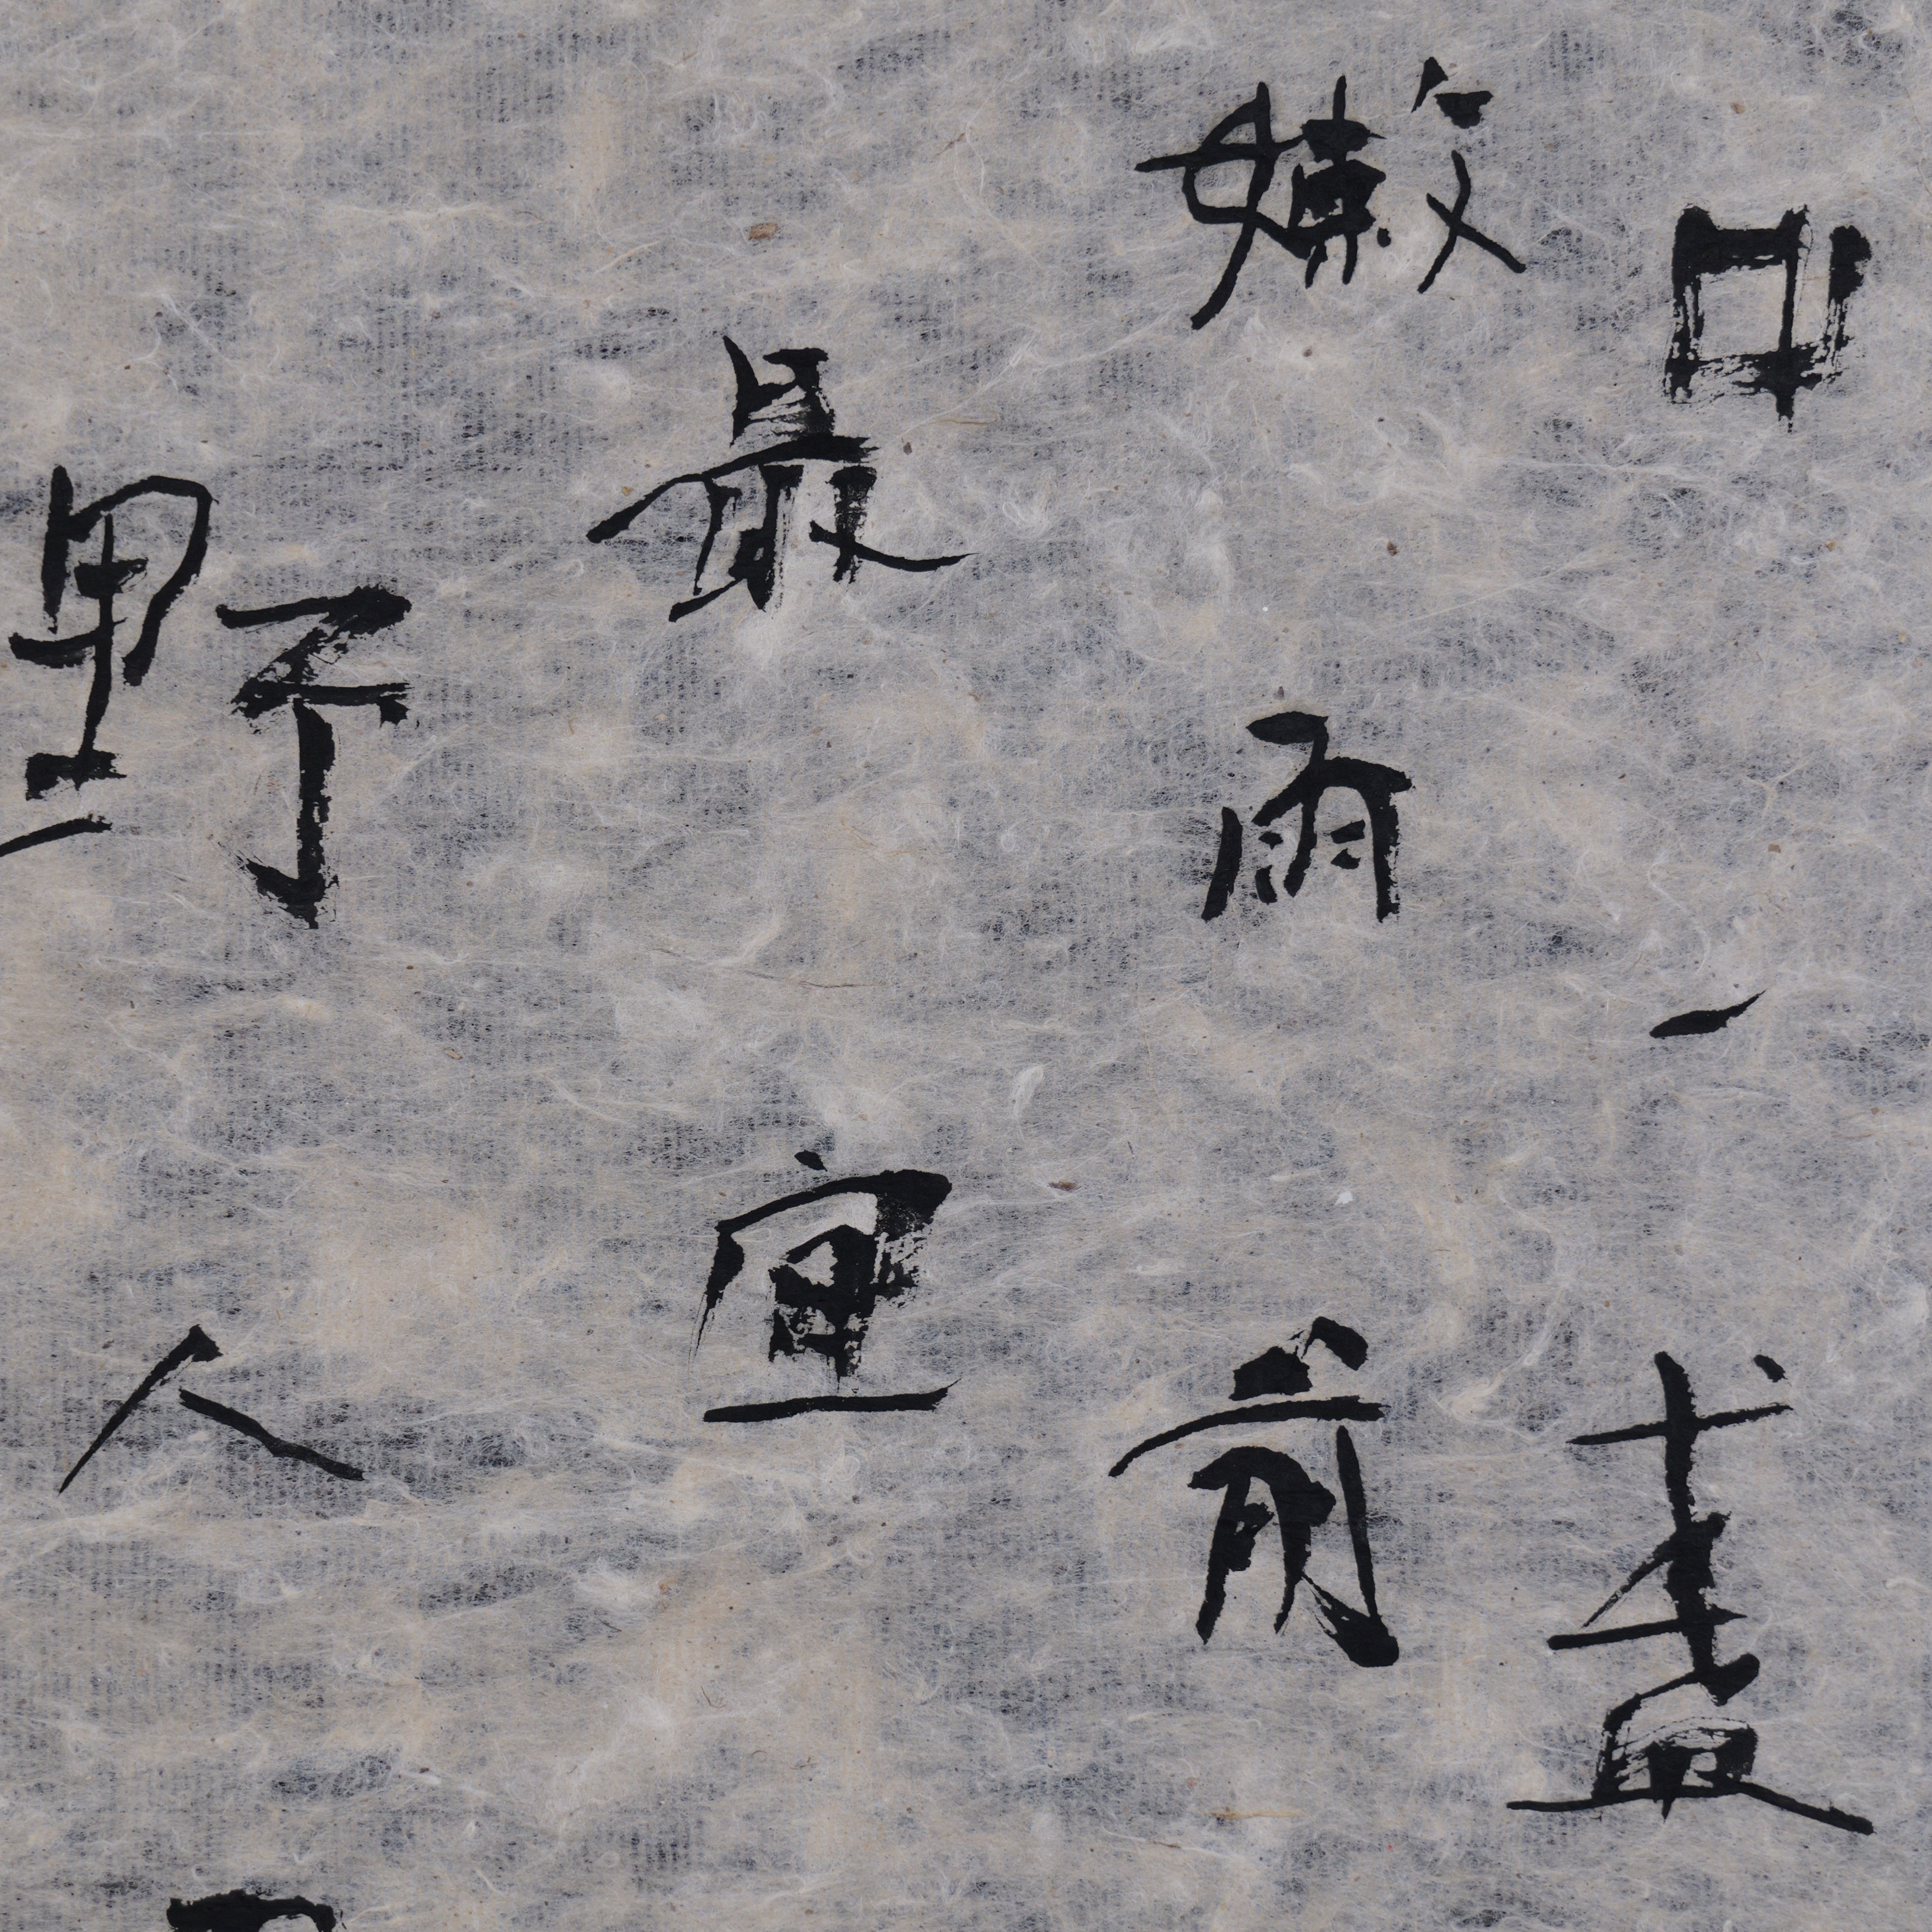 中一盞
嫩雨前
最宜
野人